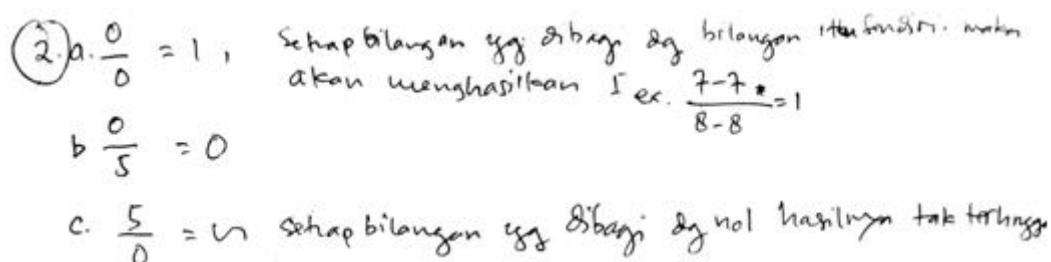 2. a. 0/0 = 1, Setiap bilangan yg dibagi dg bilangan itu sendiri. maka
akan menghasilkan 1 ex. 7-7/8-8 = 1
b 0/5 = 0
c. 5/0 = ∽ setiap bilangan yg dibagi dg nol hasilnya tak terhingga